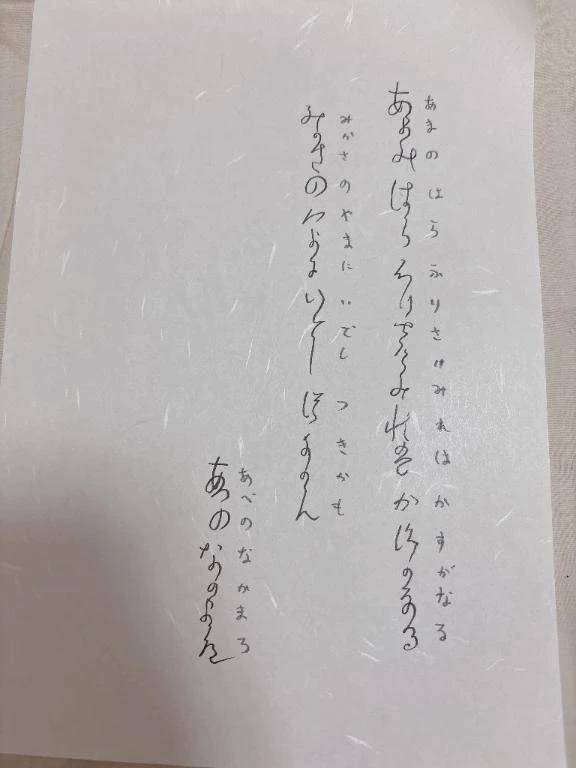 あまの はら ふりさけみれは かすがなる
あまの はら ふりさけみれは かすかなる
みかさのやまに いでし つきかも
みかさの やまに いてし つきかも
あべのなかまろ
あへの なかまろ